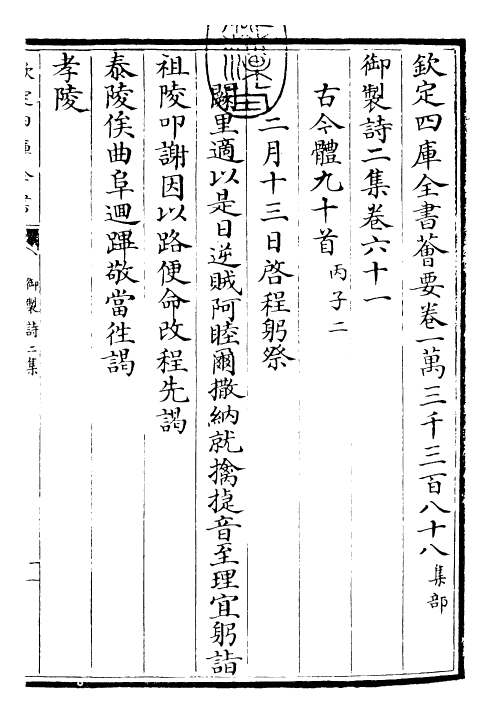 欽定四庫全書薈要卷一萬三千三百八十八 集部
御製詩二集卷六十一
古今體九十首 丙子二
二月十三日啓程躬祭
闕里適以是日逆賊阿睦爾撒納就擒㨗音至理宜躬詣
祖陵叩謝因以路便命改程先謁
泰陵俟曲阜迴蹕敬當徃謁
孝陵
欽定四庫全書
御製詩二集